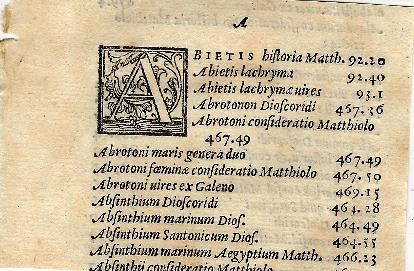 A
ABIETIS historia Matth. 92.20
Abietis lachryma 92.40
Abietis lachrymæ uires 93.1
Abrotonon Dioscoridi 467.36
Abrotoni consideratio Matthiolo
467.49
Abrotoni maris genera duo 467.49
Abrotoni fœminæ consideratio Matthiolo 467.50
Abrotoni uires ex Galeno 469.15
Absinthium Dioscoridi 464.28
Absinthium marinum Dios. 464.49
Absinthium Santonicum Dios. 464.55
Absinthium marinum Aegyptium Matth. 466.23
Absinthii consideratio Matthiolo